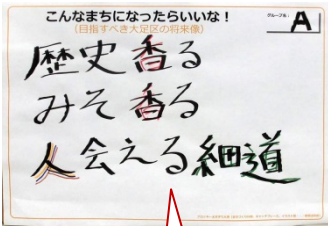 こんなまちになったらいいな！
（目指すべき大足区の将来像）
グループ名：
A
歴史香る
みそ香る
人会える細道